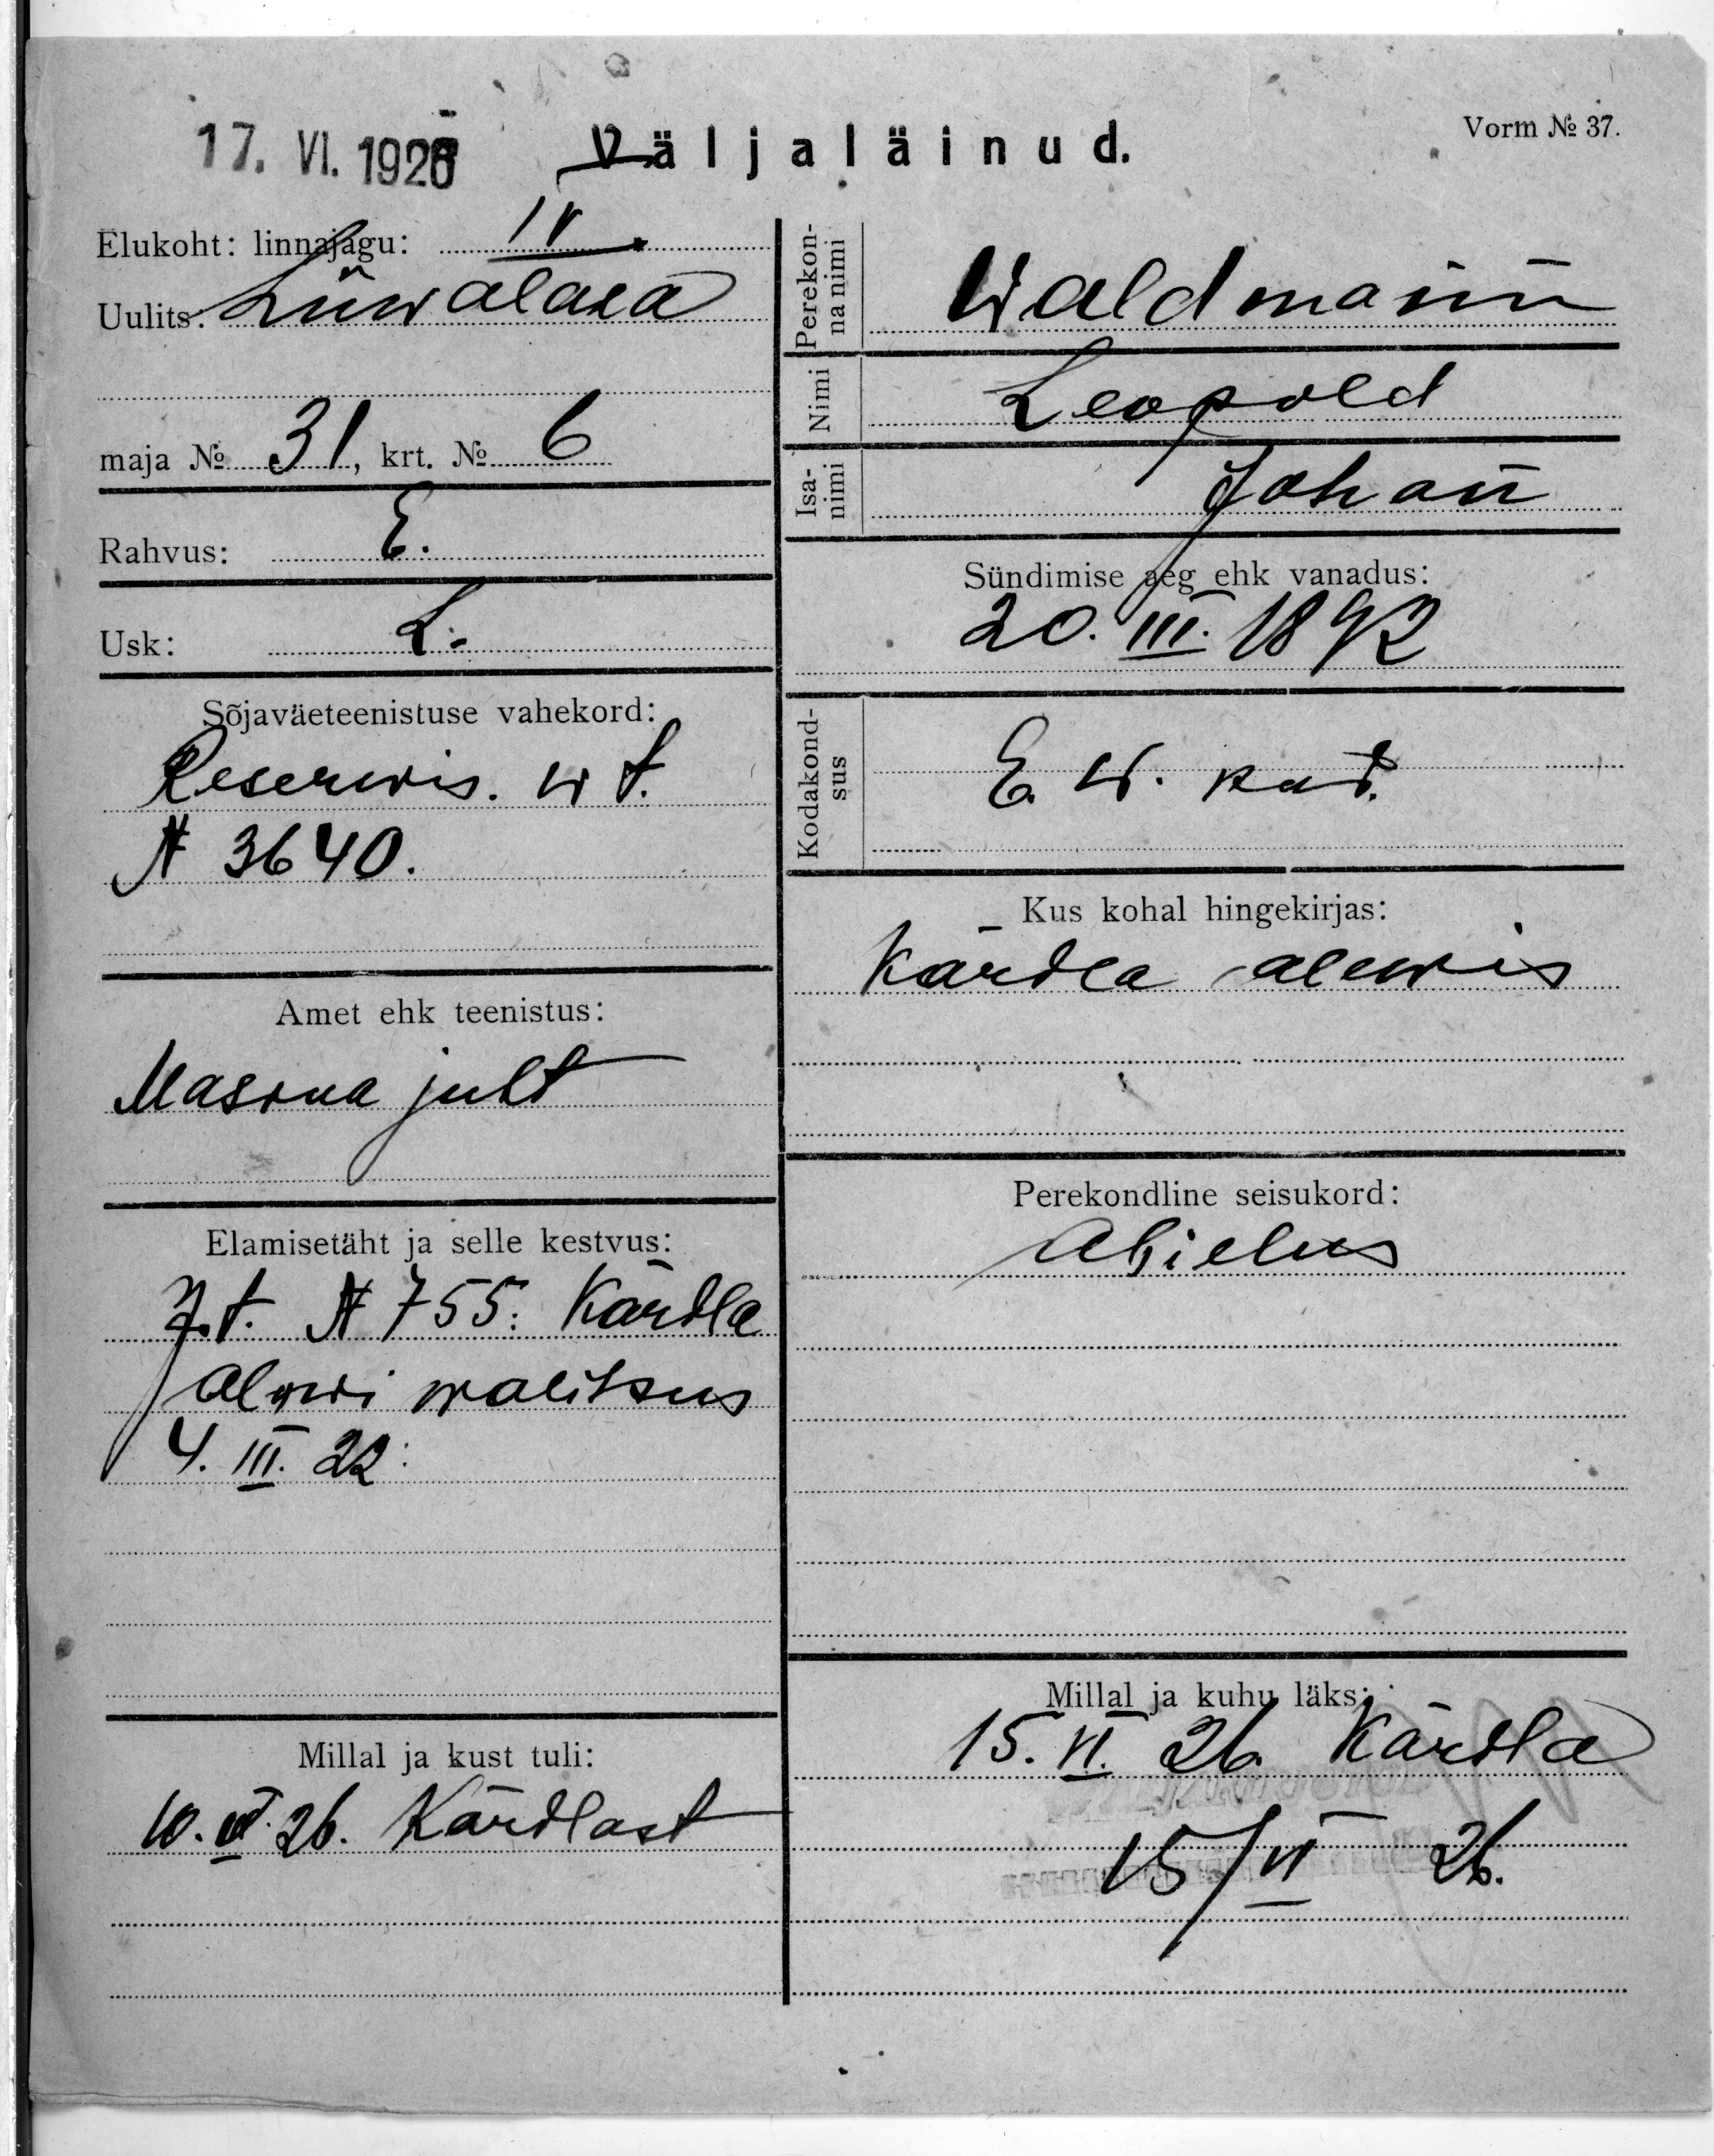 17. VI. 1926
Väljaläinud.
Vorm № 37.
Elukoht: linnajagu: IV
Uulits. Liiwalaia
maja № 31, krt. № 6
Rahvus: E.
Usk: L.
Sõjaväeteenistuse vahekord:
Reserwis. w t.
N 3640.
Amet ehk teenistus:
Masina juht
Elamisetäht ja selle kestvus:
I.t. N 755. Kärdla
alewi walitsus
4. III. 22.
Millal ja kust tuli:
10. VI. 26. Kärdlast
Perekonna nimi
Waldmann
Nimi
Leopold
Isanimi
Johan
Sündimise aeg ehk vanadus:
20. III. 1892
Kodakondsus
E. W. kod.
Kus kohal hingekirjas:
Kärdla alewis
Perekondline seisukord:
Abielus
Millal ja kuhu läks:
15. VI. 26. Kärdla
15/VI 26.